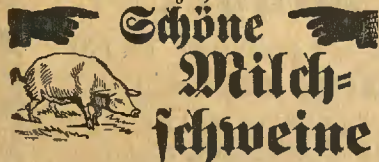 Schöne
Milch=
schweine